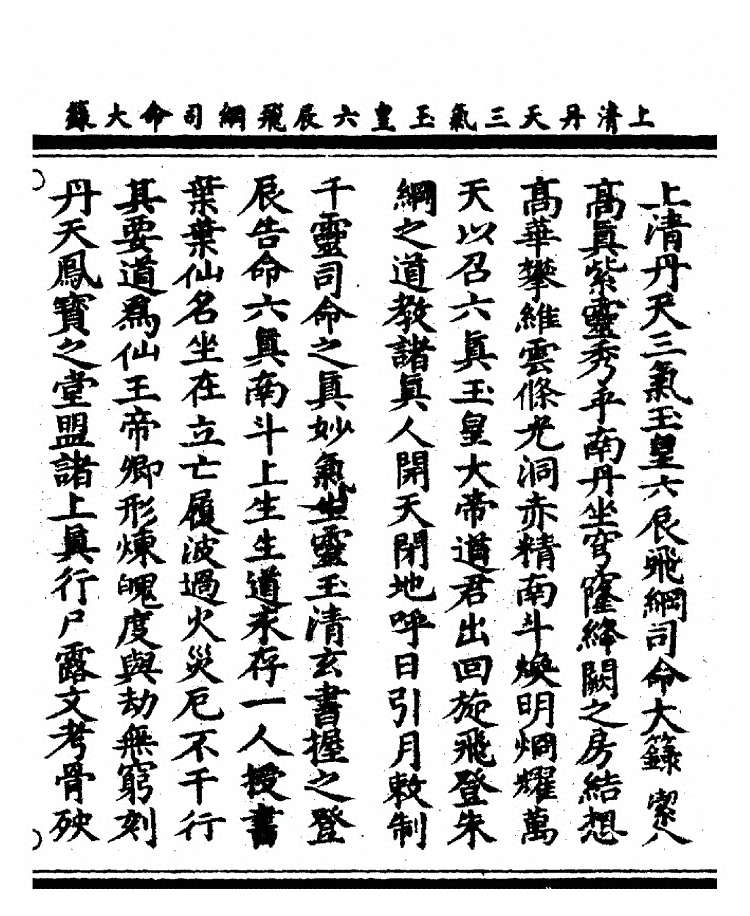 上清丹天三氣玉皇六辰飛綱司命大籙
上清丹天三氣玉皇六辰飛綱司命大籙 索八
高真紫靈秀乎南丹坐穹窿絳闕之房結想
高華攀維雲條光洞赤精南斗煥明烱耀萬
天以召六真玉皇大帝道君出回施飛登朱
綱之道教諸真人開天閉地呼日引月敕制
千靈司命之真妙氣生靈玉清玄書握之登
辰告命六真南斗上生生道求存一人授書
葉葉仙名坐在立亡履波過火災厄不干行
其要道為仙王帝卿形煉魄度與劫無窮刻
丹天鳳寶之堂盟諸上真行尸露文考骨殃